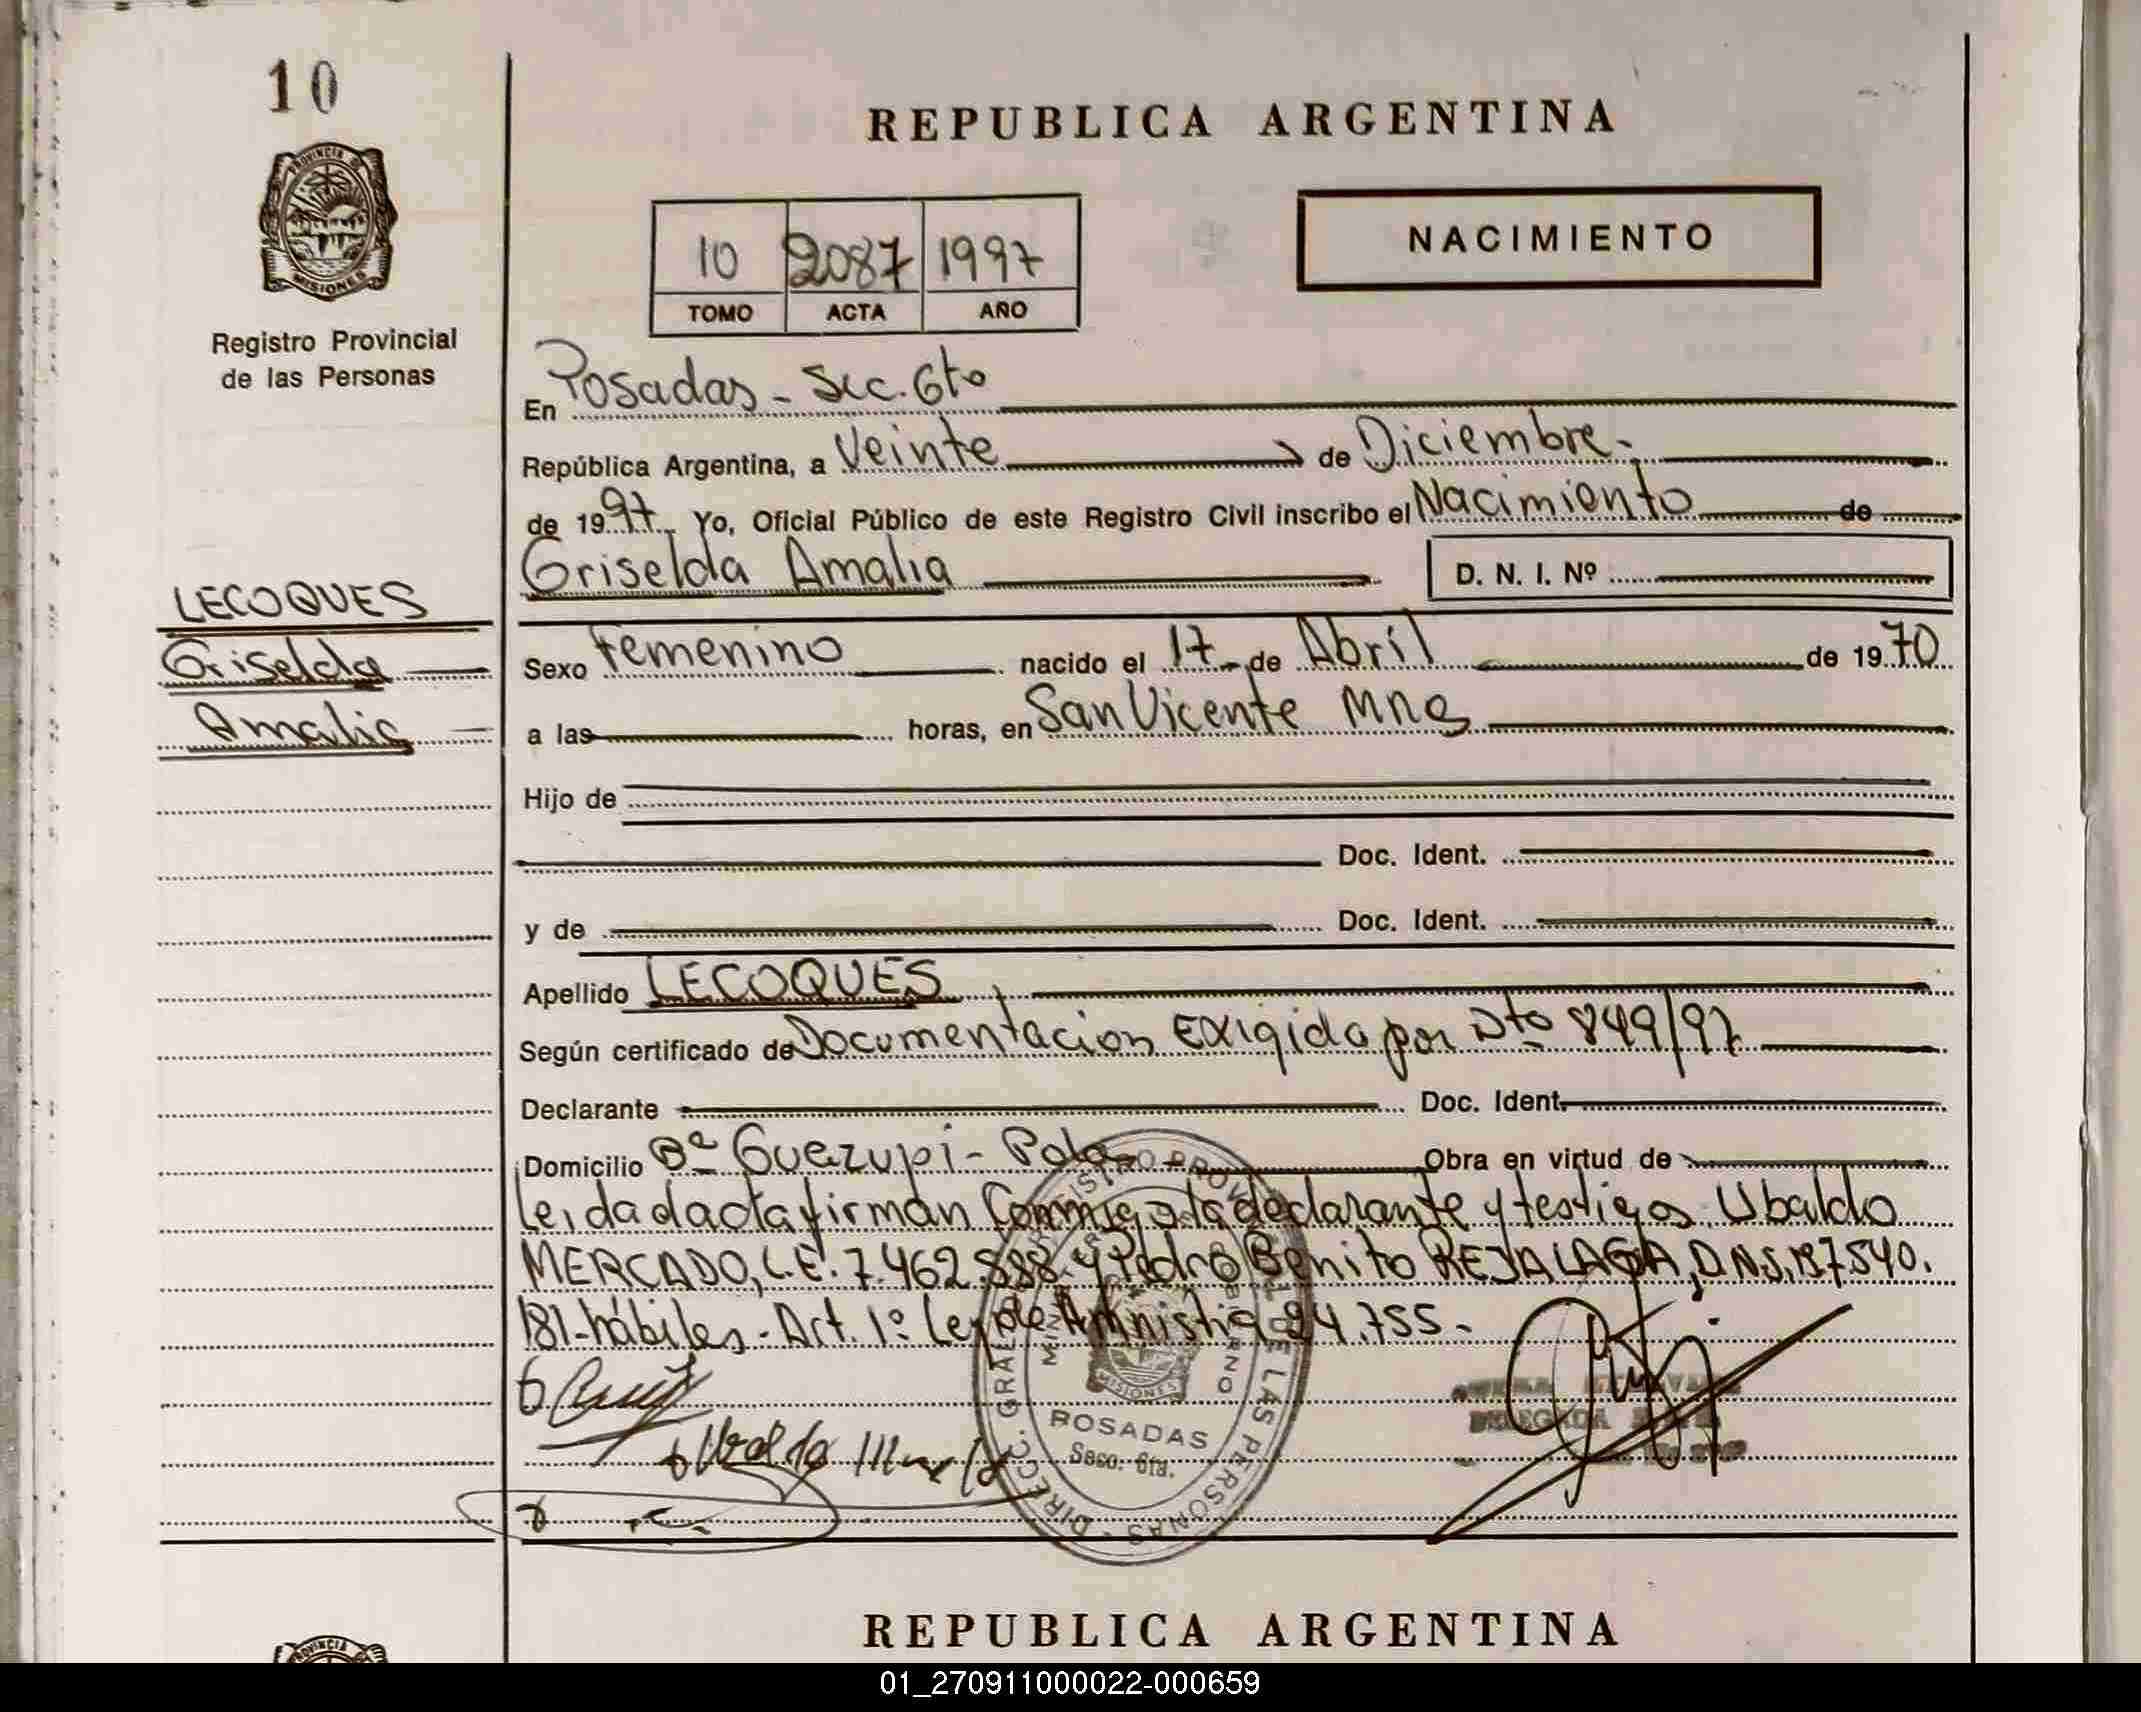 10
PROVINCIA DE
MISIONES
Registro Provincial
de las Personas
REPUBLICA ARGENTINA
10 2087 1997
TOMO ACTA AÑO
NACIMIENTO
En Posadas - Sec. 6to
República Argentina, a Veinte de Diciembre -
de 1997 Yo, Oficial Público de este Registro Civil inscribo el Nacimiento de
Griselda Amalia D. N. I. Nº
LECOQUES
Griselda
Amalia
Sexo Femenino nacido el 17 de Abríl de 1970
a las horas, en San Vicente Mnes
Hijo de
Doc. Ident.
y de Doc. Ident.
Apellido LECOQUES
Según certificado de Documentacion Exigida por Dto 849/97
Declarante Doc. Ident.
Domicilio Bº Guazupi - Pdas Obra en virtud de
Leida dacta firman Conmigo la declarante y testigos Ubaldo
MERCADO, L.E. 7.462.888 y Pedro Benito REJALAGA, D.N.I. 137540.
181 - hábiles - Art. 1º Ley de Amnistia 24.755 -
MISIONES
POSADAS
Secc. 6ta.
DIRECC. GRAL. DE LAS PERSONAS
REPUBLICA ARGENTINA
PROVINCIA
01_270911000022-000659